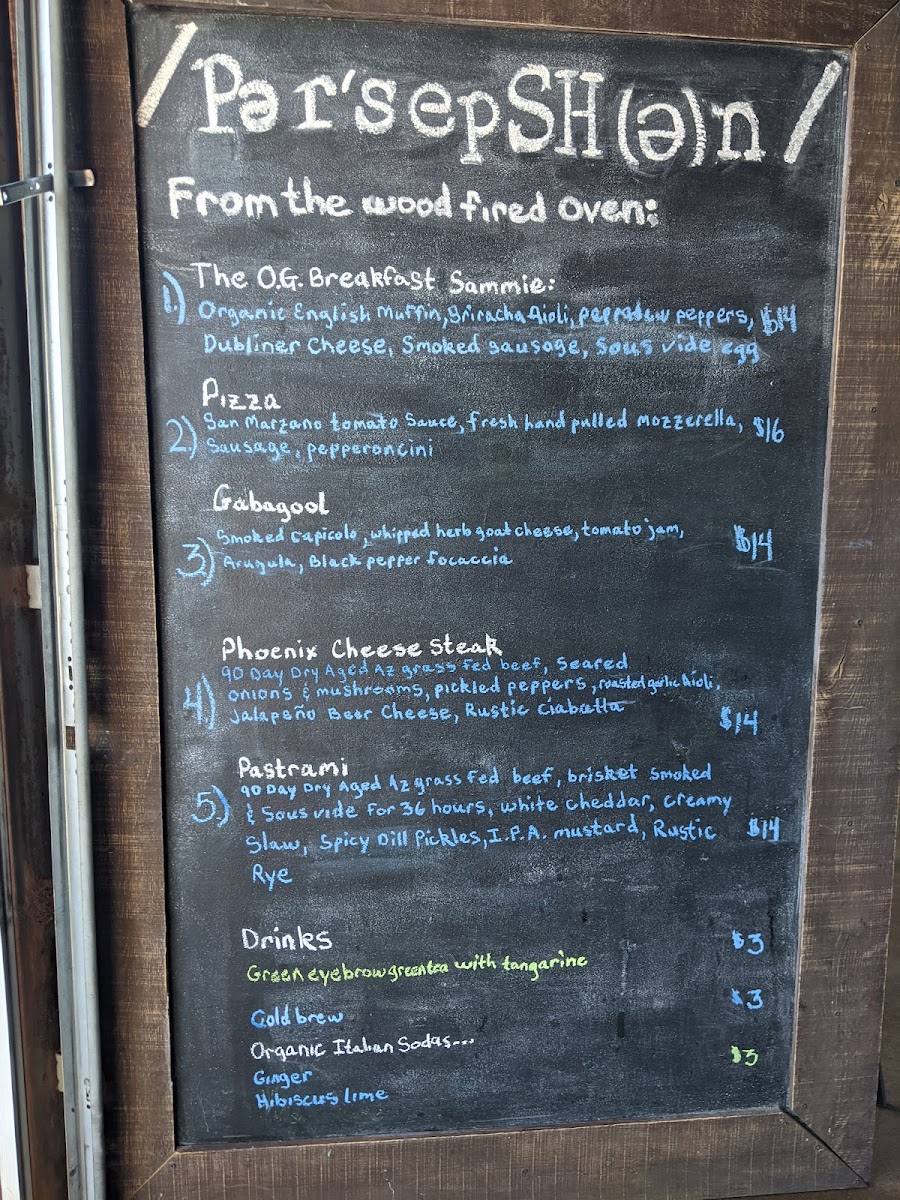 /Pər'sepSH(ə)n/
From the wood fired oven:
The O.G. Breakfast Sammie:
1.) Organic English Muffin, Sriracha Aioli, peppadew peppers, $14
Dubliner Cheese, Smoked sausage, Sous vide egg
Pizza
San Marzano tomato Sauce, fresh hand pulled mozzerella, $16
2.) Sausage, pepperoncini
Gabagool
Smoked capicolo, whipped herb goat cheese, tomato jam, $14
3.) Arugula, Black pepper focaccia
Phoenix Cheese Steak
90 Day Dry Aged Az grass Fed beef, Seared
4.) onions & mushrooms, pickled peppers, roasted garlic Aioli,
Jalapeño Beer Cheese, Rustic Ciabatta $14
Pastrami
90 Day Dry Aged Az grass Fed beef, brisket smoked
5.) & Sous vide For 36 hours, white cheddar, creamy
Slaw, Spicy Dill Pickles, I.P.A. mustard, Rustic $14
Rye
Drinks $3
Green eyebrow green tea with tangarine
Cold brew $3
Organic Italian Sodas... $3
Ginger
Hibiscus lime